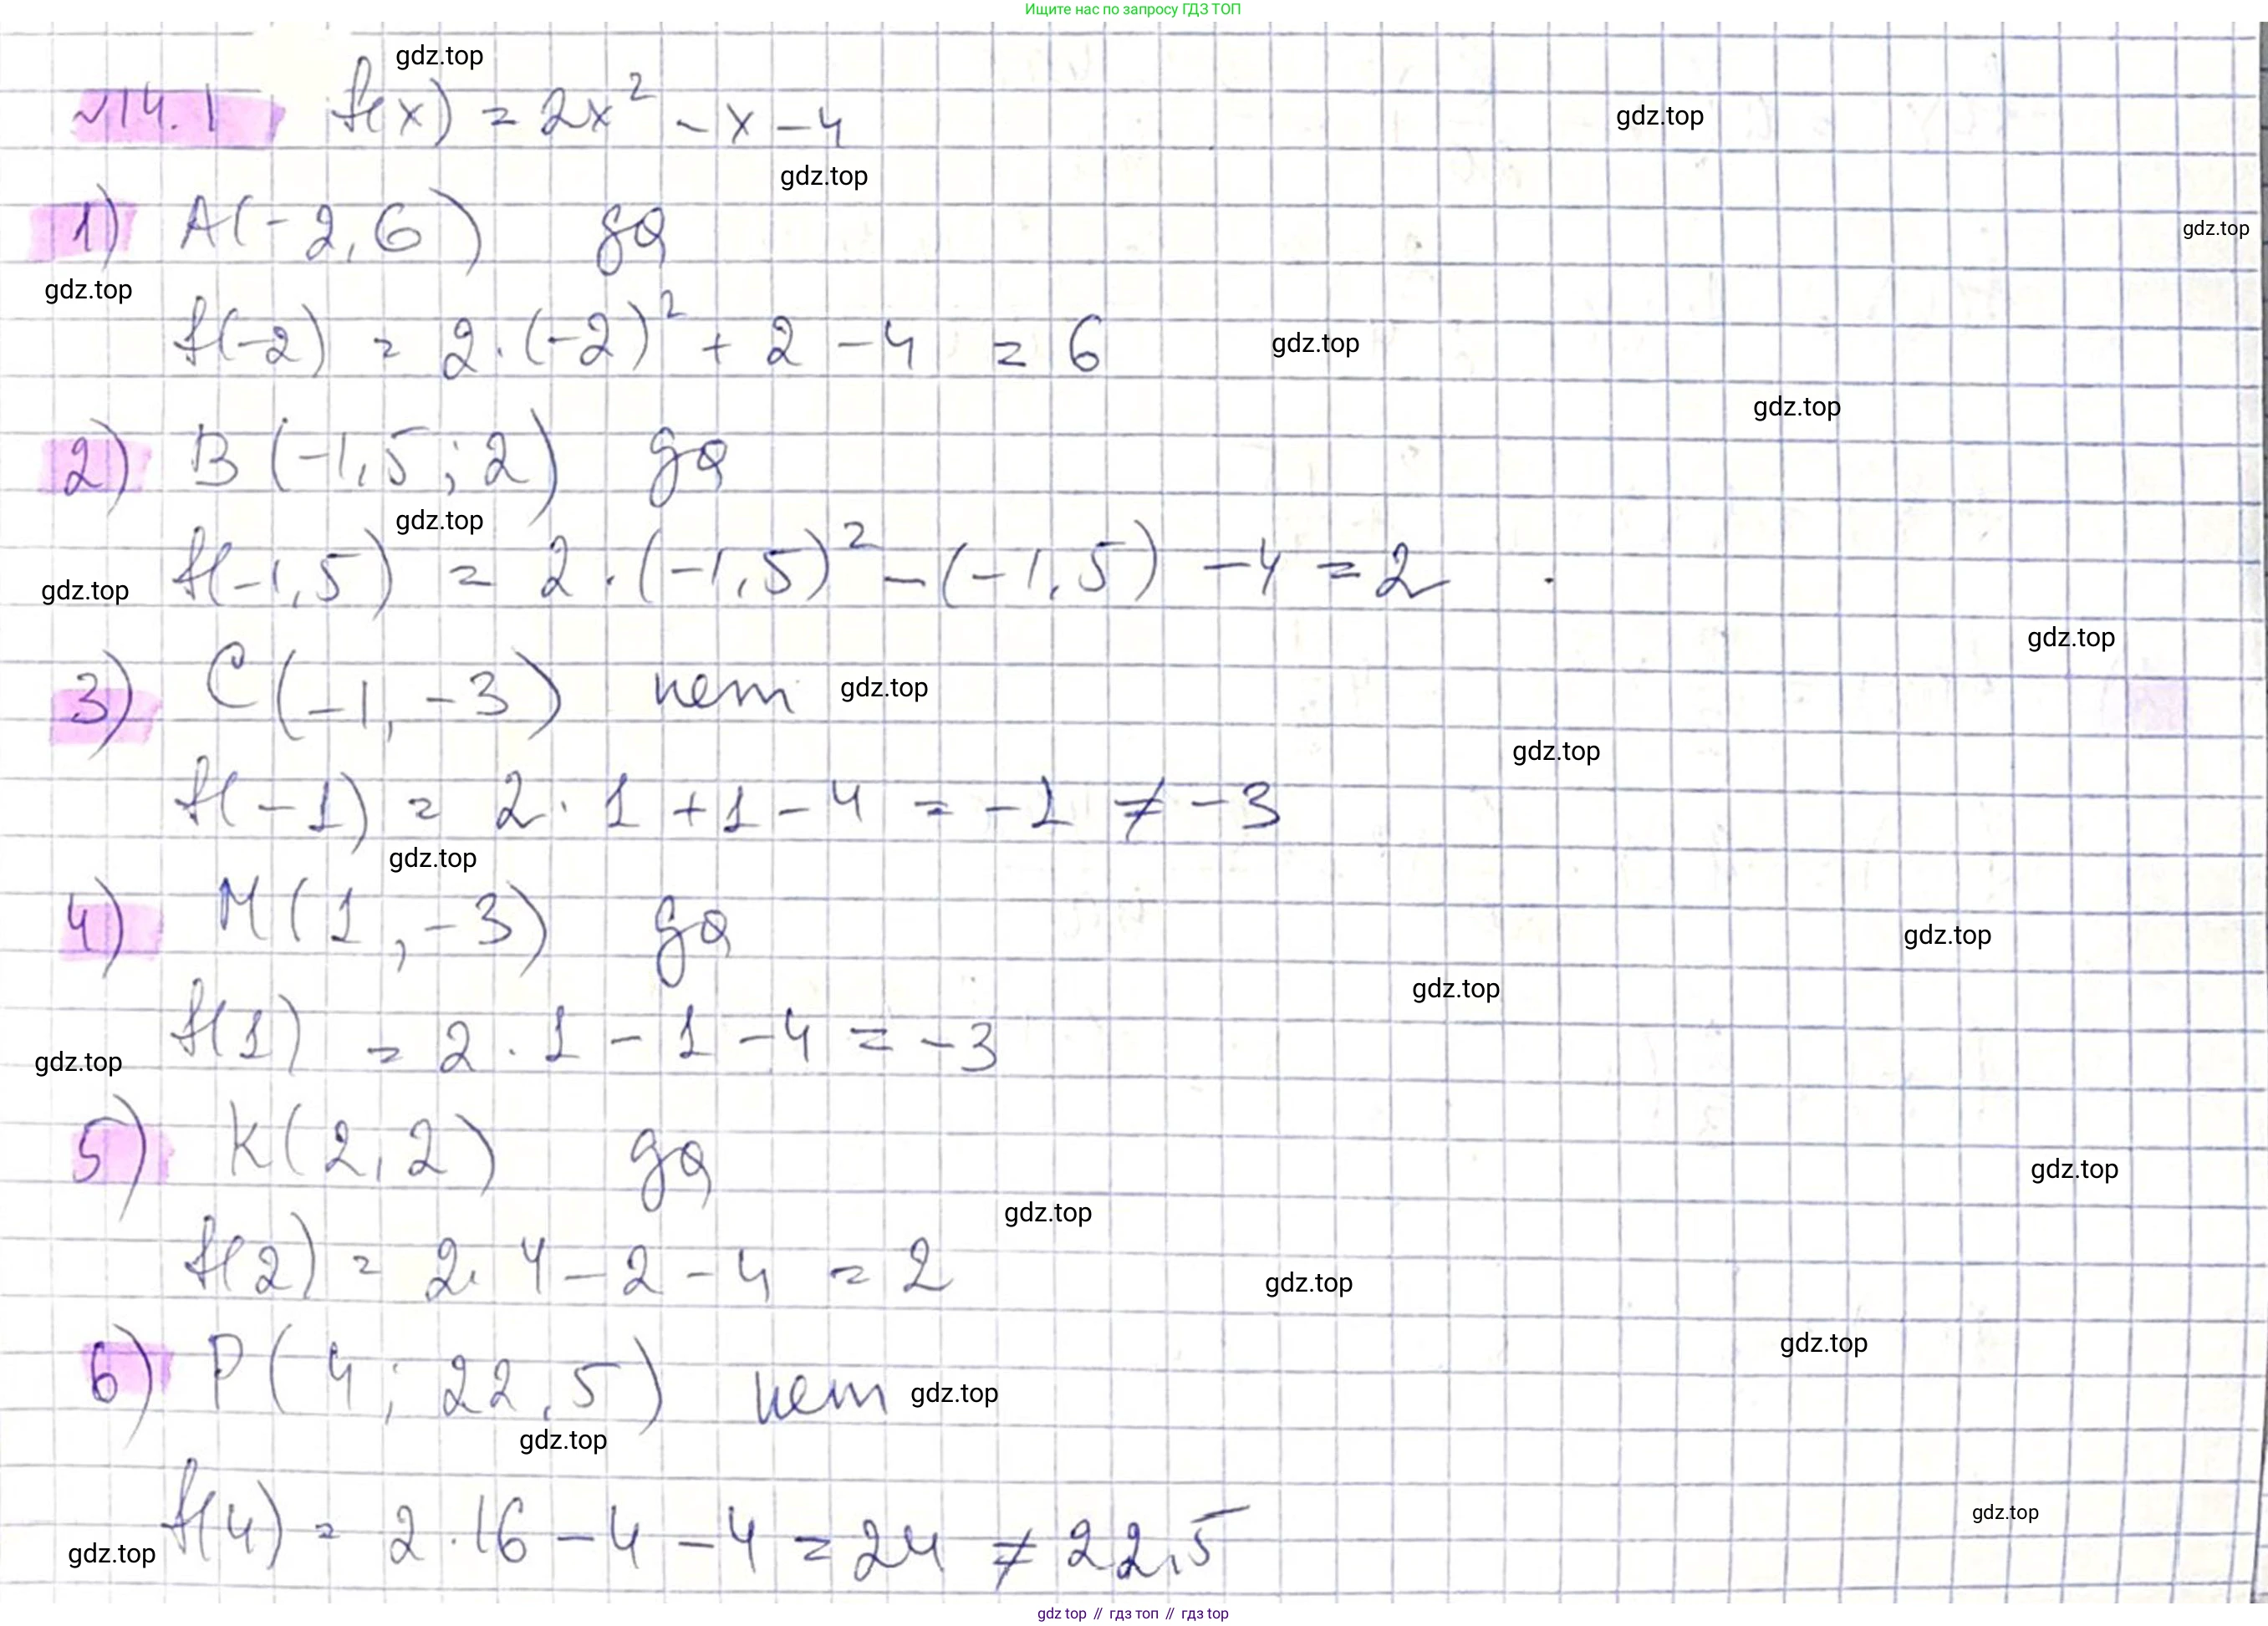 Ищите нас по запросу ГДЗ ТОП
gdz.top
№14.1 f(x) = 2x² - x - 4
gdz.top
gdz.top
1) A(-2, 6) да
gdz.top
gdz.top
f(-2) = 2·(-2)² + 2 - 4 = 6
gdz.top
gdz.top
2) B(-1,5; 2) да
gdz.top
f(-1,5) = 2·(-1,5)² - (-1,5) - 4 = 2
gdz.top
gdz.top
3) C(-1, -3) нет
gdz.top
gdz.top
f(-1) = 2·1 + 1 - 4 = -1 ≠ -3
gdz.top
4) M(1, -3) да
gdz.top
gdz.top
f(1) = 2·1 - 1 - 4 = -3
gdz.top
5) K(2, 2) да
gdz.top
gdz.top
f(2) = 2·4 - 2 - 4 = 2
gdz.top
gdz.top
6) P(4; 22,5) нет
gdz.top
gdz.top
gdz.top
f(4) = 2·16 - 4 - 4 = 24 ≠ 22,5
gdz.top
gdz top // гдз топ // гдз top